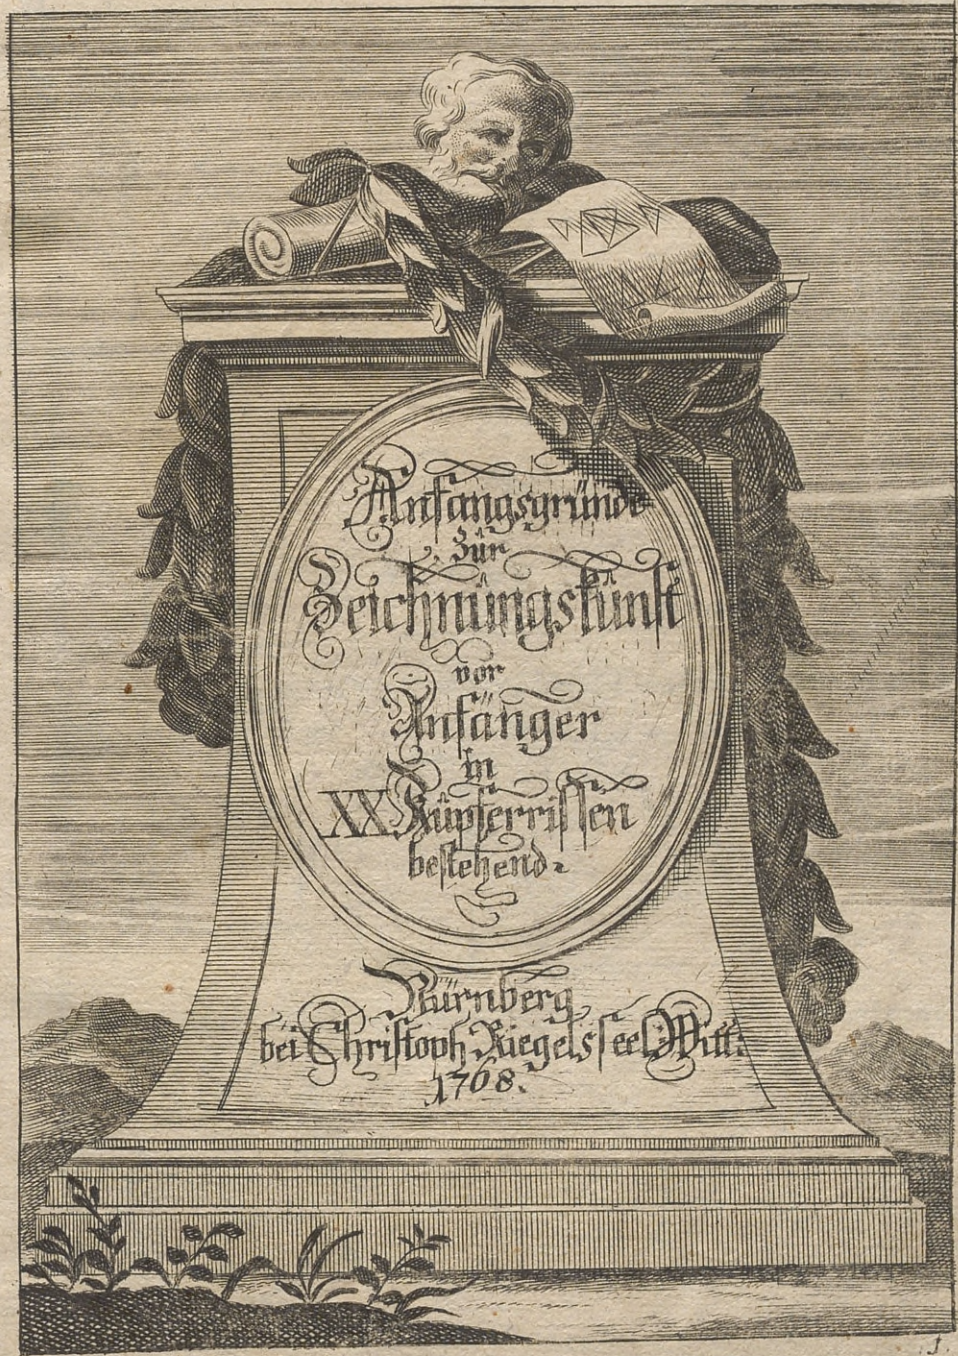 Anfangsgründe
zur
Zeichnungskunst
vor
Anfänger
in
XX Kupferrissen
bestehend.
Nürnberg
bei Christoph Riegels seel. Witt:
1768.
1.